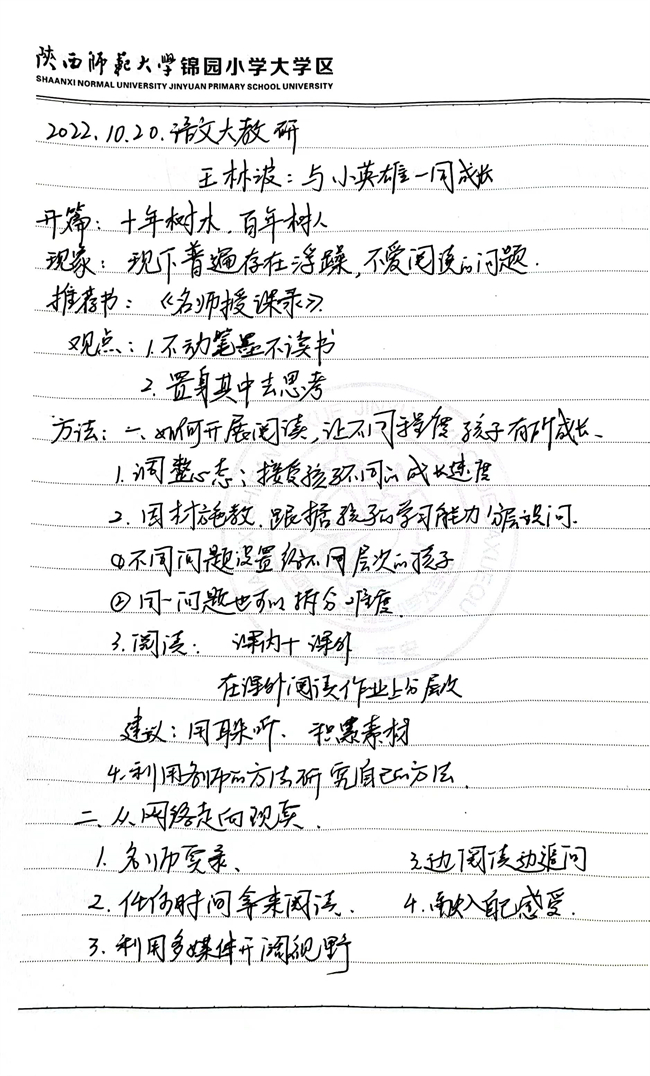 陕西师范大学锦园小学大学区
SHAANXI NORMAL UNIVERSITY JINYUAN PRIMARY SCHOOL UNIVERSITY
2022.10.20.语文大教研
王林波：与小英雄一同成长
开篇：十年树木，百年树人
现象：现下普遍存在浮躁，不爱阅读的问题.
推荐书：《名师授课录》
观点：1.不动笔墨不读书
2.置身其中去思考
方法：一、如何开展阅读，让不同程度孩子有所成长、
1.调整心态；接受孩子不同的成长速度
2.因材施教.跟据孩子的学习能力分层设问.
①不同问题设置给不同层次的孩子
②同一问题也可以拆分难度.
3.阅读：课内+课外
在课外阅读作业上分层次
建议：用耳朵听、积累素材
4.利用名师的方法研究自己的方法.
二、从网络走向现实.
1.名师实录、 3.边阅读边追问
2.任何时间拿来阅读. 4.融入自己感受.
3.利用多媒体开阔视野